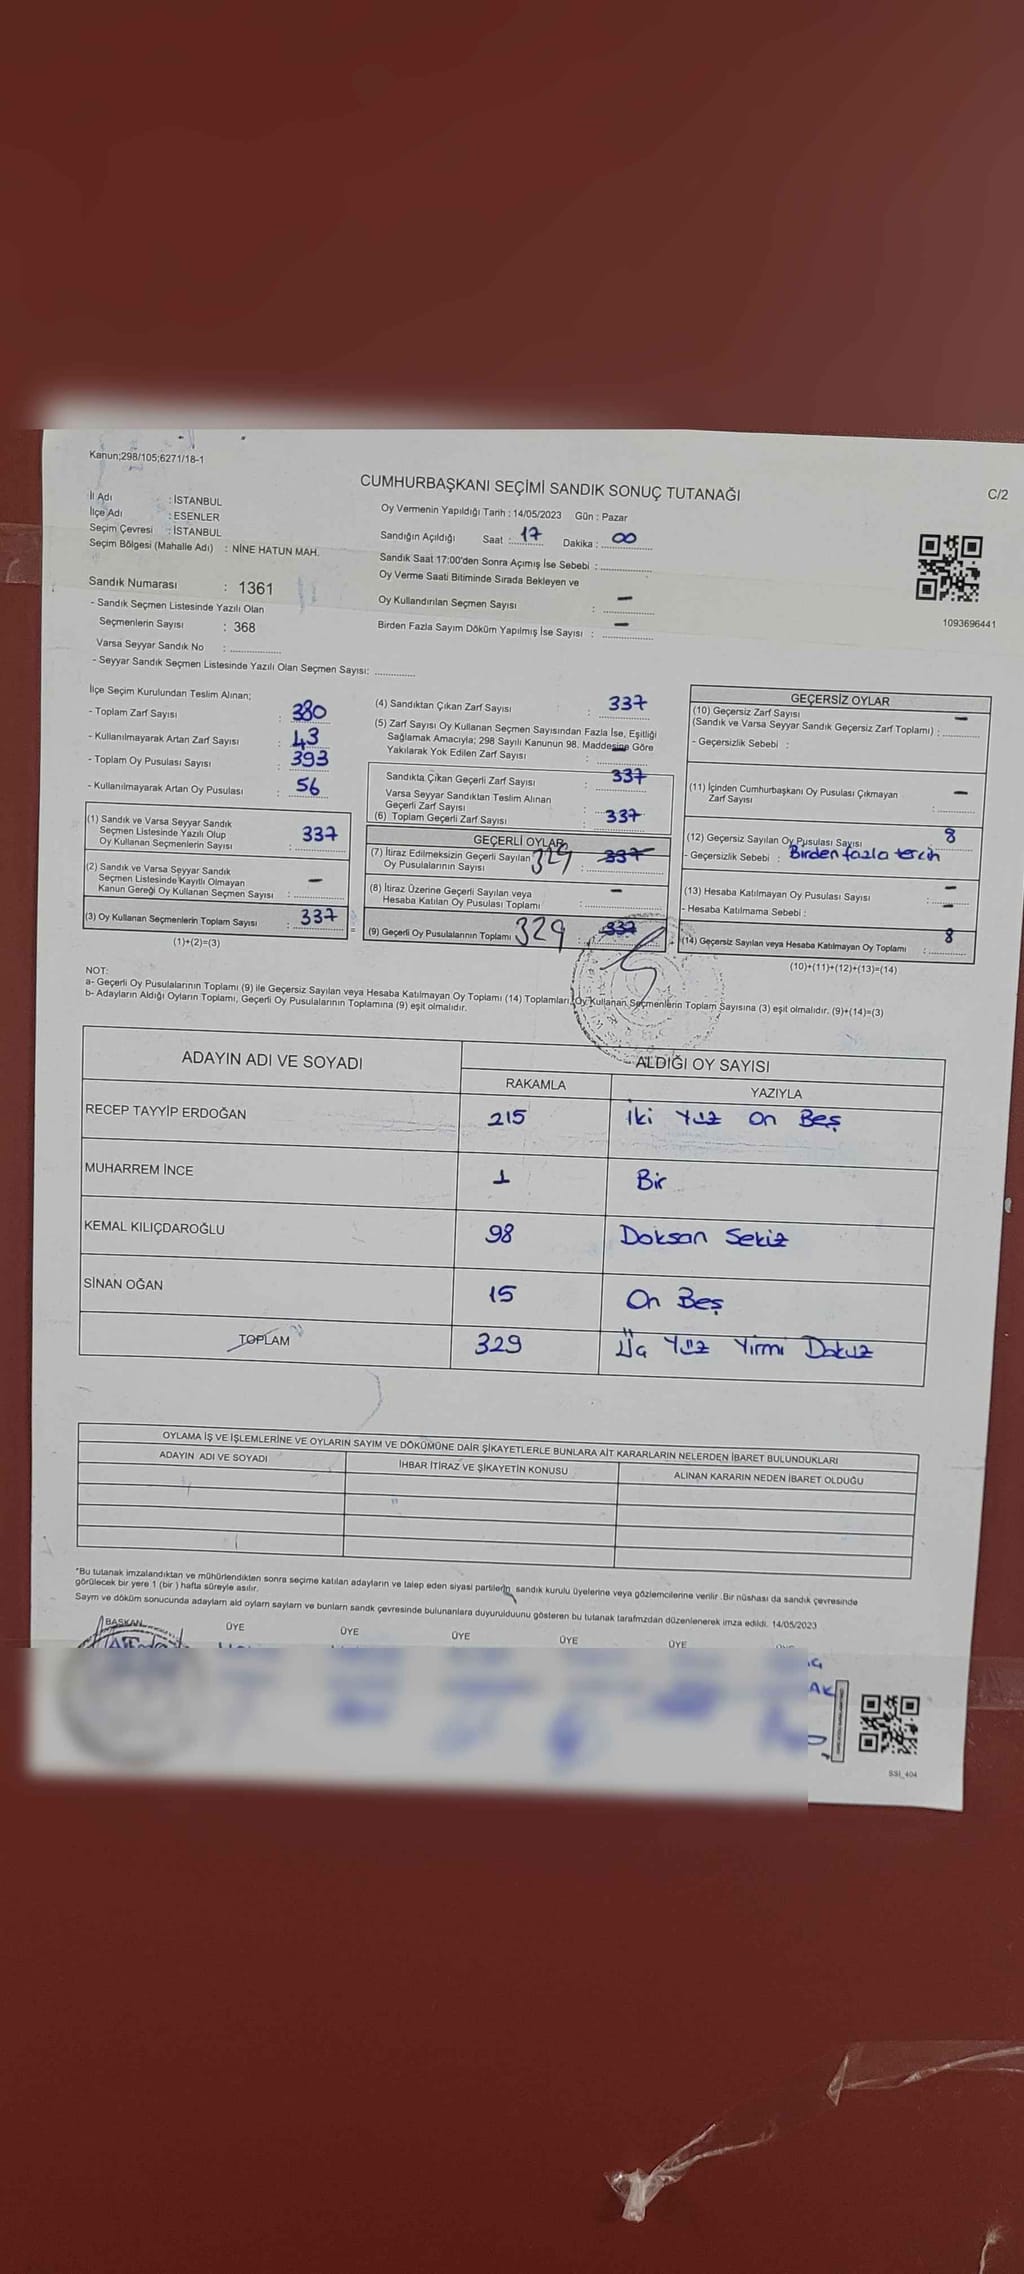 Kanun;298/105;6271/18-1
CUMHURBAŞKANI SEÇİMİ SANDIK SONUÇ TUTANAĞI
C/2
İl Adı : İSTANBUL
İlçe Adı : ESENLER
Seçim Çevresi : İSTANBUL
Seçim Bölgesi (Mahalle Adı) : NİNE HATUN MAH.
Oy Vermenin Yapıldığı Tarih : 14/05/2023 Gün : Pazar
Sandığın Açıldığı Saat : 17 Dakika : 00
Sandık Saat 17:00'den Sonra Açımış İse Sebebi :
Oy Verme Saati Bitiminde Sırada Bekleyen ve
Oy Kullandırılan Seçmen Sayısı : –
Birden Fazla Sayım Döküm Yapılmış İse Sayısı : –
1093696441
Sandık Numarası : 1361
- Sandık Seçmen Listesinde Yazılı Olan
Seçmenlerin Sayısı : 368
Varsa Seyyar Sandık No :
- Seyyar Sandık Seçmen Listesinde Yazılı Olan Seçmen Sayısı:
İlçe Seçim Kurulundan Teslim Alınan;
- Toplam Zarf Sayısı : 380
- Kullanılmayarak Artan Zarf Sayısı : 43
- Toplam Oy Pusulası Sayısı : 393
- Kullanılmayarak Artan Oy Pusulası : 56
(1) Sandık ve Varsa Seyyar Sandık
Seçmen Listesinde Yazılı Olup
Oy Kullanan Seçmenlerin Sayısı : 337
(2) Sandık ve Varsa Seyyar Sandık
Seçmen Listesinde Kayıtlı Olmayan
Kanun Gereği Oy Kullanan Seçmen Sayısı : –
(3) Oy Kullanan Seçmenlerin Toplam Sayısı : 337
(1)+(2)=(3)
(4) Sandıktan Çıkan Zarf Sayısı : 337
(5) Zarf Sayısı Oy Kullanan Seçmen Sayısından Fazla İse, Eşitliği
Sağlamak Amacıyla; 298 Sayılı Kanunun 98. Maddesine Göre
Yakılarak Yok Edilen Zarf Sayısı : –
Sandıkta Çıkan Geçerli Zarf Sayısı : 337
Varsa Seyyar Sandıktan Teslim Alınan
Geçerli Zarf Sayısı :
(6) Toplam Geçerli Zarf Sayısı : 337
GEÇERLİ OYLAR
(7) İtiraz Edilmeksizin Geçerli Sayılan 329 337
Oy Pusulalarının Sayısı :
(8) İtiraz Üzerine Geçerli Sayılan veya –
Hesaba Katılan Oy Pusulası Toplamı :
(9) Geçerli Oy Pusulalarının Toplamı 329 : 337
GEÇERSİZ OYLAR
(10) Geçersiz Zarf Sayısı –
(Sandık ve Varsa Seyyar Sandık Geçersiz Zarf Toplamı) :
- Geçersizlik Sebebi :
(11) İçinden Cumhurbaşkanı Oy Pusulası Çıkmayan –
Zarf Sayısı :
(12) Geçersiz Sayılan Oy Pusulası Sayısı 8
- Geçersizlik Sebebi : Birden fazla tercih
(13) Hesaba Katılmayan Oy Pusulası Sayısı : –
- Hesaba Katılmama Sebebi : –
(14) Geçersiz Sayılan veya Hesaba Katılmayan Oy Toplamı : 8
(10)+(11)+(12)+(13)=(14)
NOT:
a- Geçerli Oy Pusulalarının Toplamı (9) ile Geçersiz Sayılan veya Hesaba Katılmayan Oy Toplamı (14) Toplamları, Oy Kullanan Seçmenlerin Toplam Sayısına (3) eşit olmalıdır. (9)+(14)=(3)
b- Adayların Aldığı Oyların Toplamı, Geçerli Oy Pusulalarının Toplamına (9) eşit olmalıdır.
ADAYIN ADI VE SOYADI ALDIĞI OY SAYISI
RAKAMLA YAZIYLA
RECEP TAYYİP ERDOĞAN 215 İki Yüz On Beş
MUHARREM İNCE 1 Bir
KEMAL KILIÇDAROĞLU 98 Doksan Sekiz
SİNAN OĞAN 15 On Beş
TOPLAM 329 Üç Yüz Yirmi Dokuz
OYLAMA İŞ VE İŞLEMLERİNE VE OYLARIN SAYIM VE DÖKÜMÜNE DAİR ŞİKAYETLERLE BUNLARA AİT KARARLARIN NELERDEN İBARET BULUNDUKLARI
ADAYIN ADI VE SOYADI İHBAR İTİRAZ VE ŞİKAYETİN KONUSU ALINAN KARARIN NEDEN İBARET OLDUĞU
*Bu tutanak imzalandıktan ve mühürlendikten sonra seçime katılan adayların ve talep eden siyasi partilerin, sandık kurulu üyelerine veya gözlemcilerine verilir .Bir nüshası da sandık çevresinde
görülecek bir yere 1 (bir ) hafta süreyle asılır.
Saym ve döküm sonucunda adaylarn ald oylarn saylarn ve bunlarn sandk çevresinde bulunanlara duyurulduunu gösteren bu tutanak tarafmzdan düzenlenerek imza edildi. 14/05/2023
BAŞKAN ÜYE ÜYE ÜYE ÜYE ÜYE
SSI_404